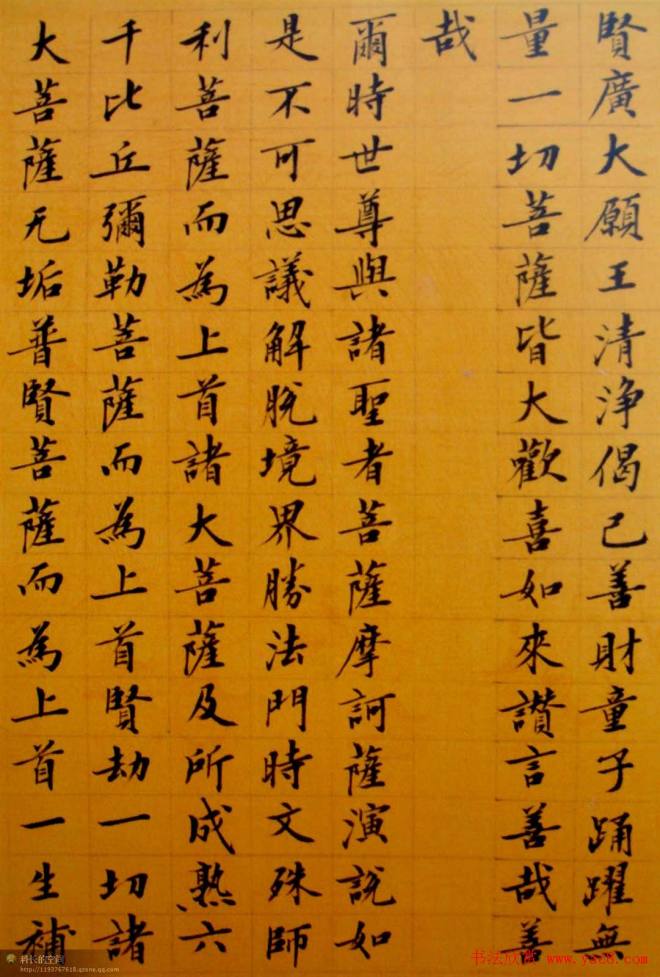 賢廣大願王清淨偈已善財童子踊躍無
量一切菩薩皆大歡喜如來讚言善哉善
哉
爾時世尊與諸聖者菩薩摩訶薩演說如
是不可思議解脫境界勝法門時文殊師
利菩薩而為上首諸大菩薩及所成熟六
千比丘彌勒菩薩而為上首賢劫一切諸
大菩薩无垢普賢菩薩而為上首一生補
科长的空间
http://1193767618.qzone.qq.com
书法欣赏 www.yac8.com